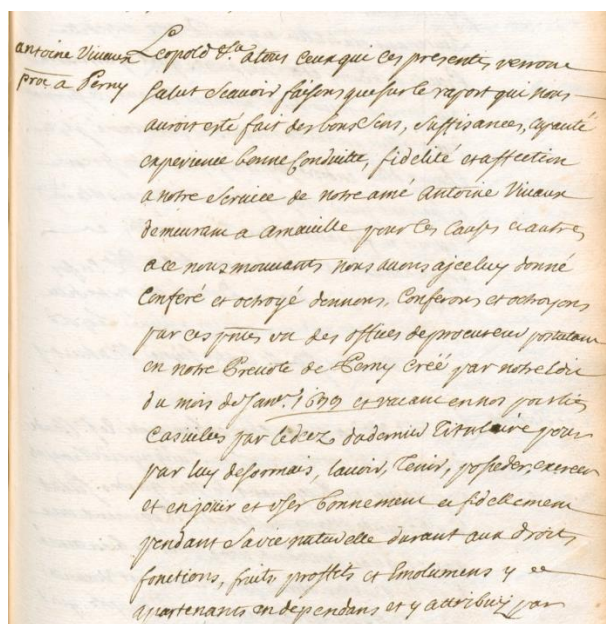 antoine Viuaux
proc. a Perny
Leopold &ca. atous ceux qui ces presentes verront
salut scauoir faisons que sur le raport qui nous
auroit esté fait des bons sens, suffisances, capacité
experience bonne Conduitte, fidelité et affection
a notre seruice de notre amé Antoine Viuaux
demeurant a arnauille pour ces Causes et autres
a ce nous mouuants nous auons a jceluy donné
Conferé et octroyé donnons, Conferons et octroyons
par ces pntes vn des offices de procureur postulant
en notre Preuoté de Perny Créé par notre Edit
du mois de Janv.r 1699 et vacant en nos parties
Casuelles par le decez du dernier Titulaire pour
par luy desormais, lauoir, Tenir, posseder, exercer
et en jouir et vser bonnement et fidellement
pendant sa vie naturelle durant aux droits,
fonctions, fruits, proffits et Emolumens y
apartenants en dependans et y attribuez par